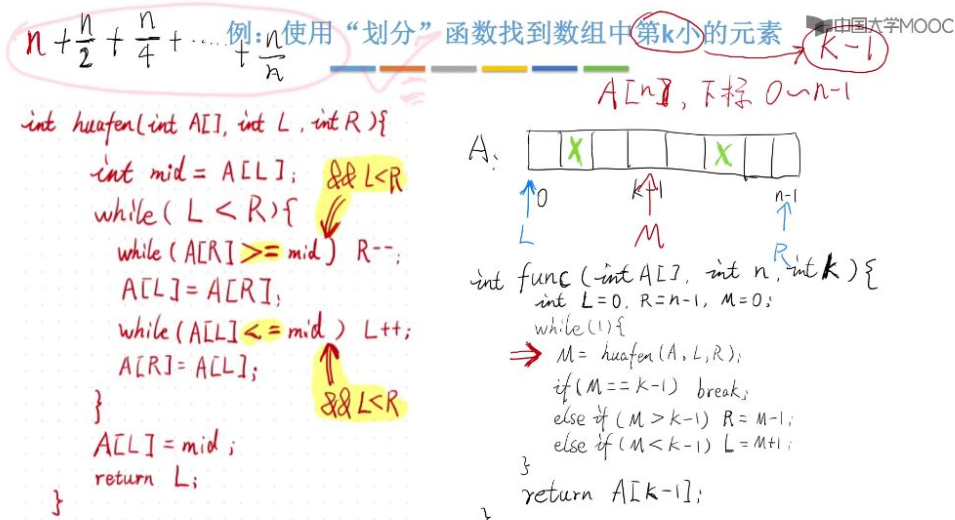 n + n/2 + n/4 + ····· + n/n
例：使用“划分”函数找到数组中第k小的元素
中国大学MOOC
k-1
A[n], 下标 0~n-1
int huafen(int A[], int L, int R){
int mid = A[L];
&& L<R
while( L < R){
while(A[R] >= mid) R--;
A[L]=A[R];
while(A[L] <= mid) L++;
A[R]=A[L];
&& L<R
}
A[L]=mid;
return L;
}
A:
X
X
0
k-1
n-1
L
M
R
int func (int A[], int n, int k){
int L=0, R=n-1, M=0;
while(1){
M= huafen(A, L, R);
if(M==k-1) break;
else if (M>k-1) R=M-1;
else if (M<k-1) L=M+1;
}
return A[k-1];
}